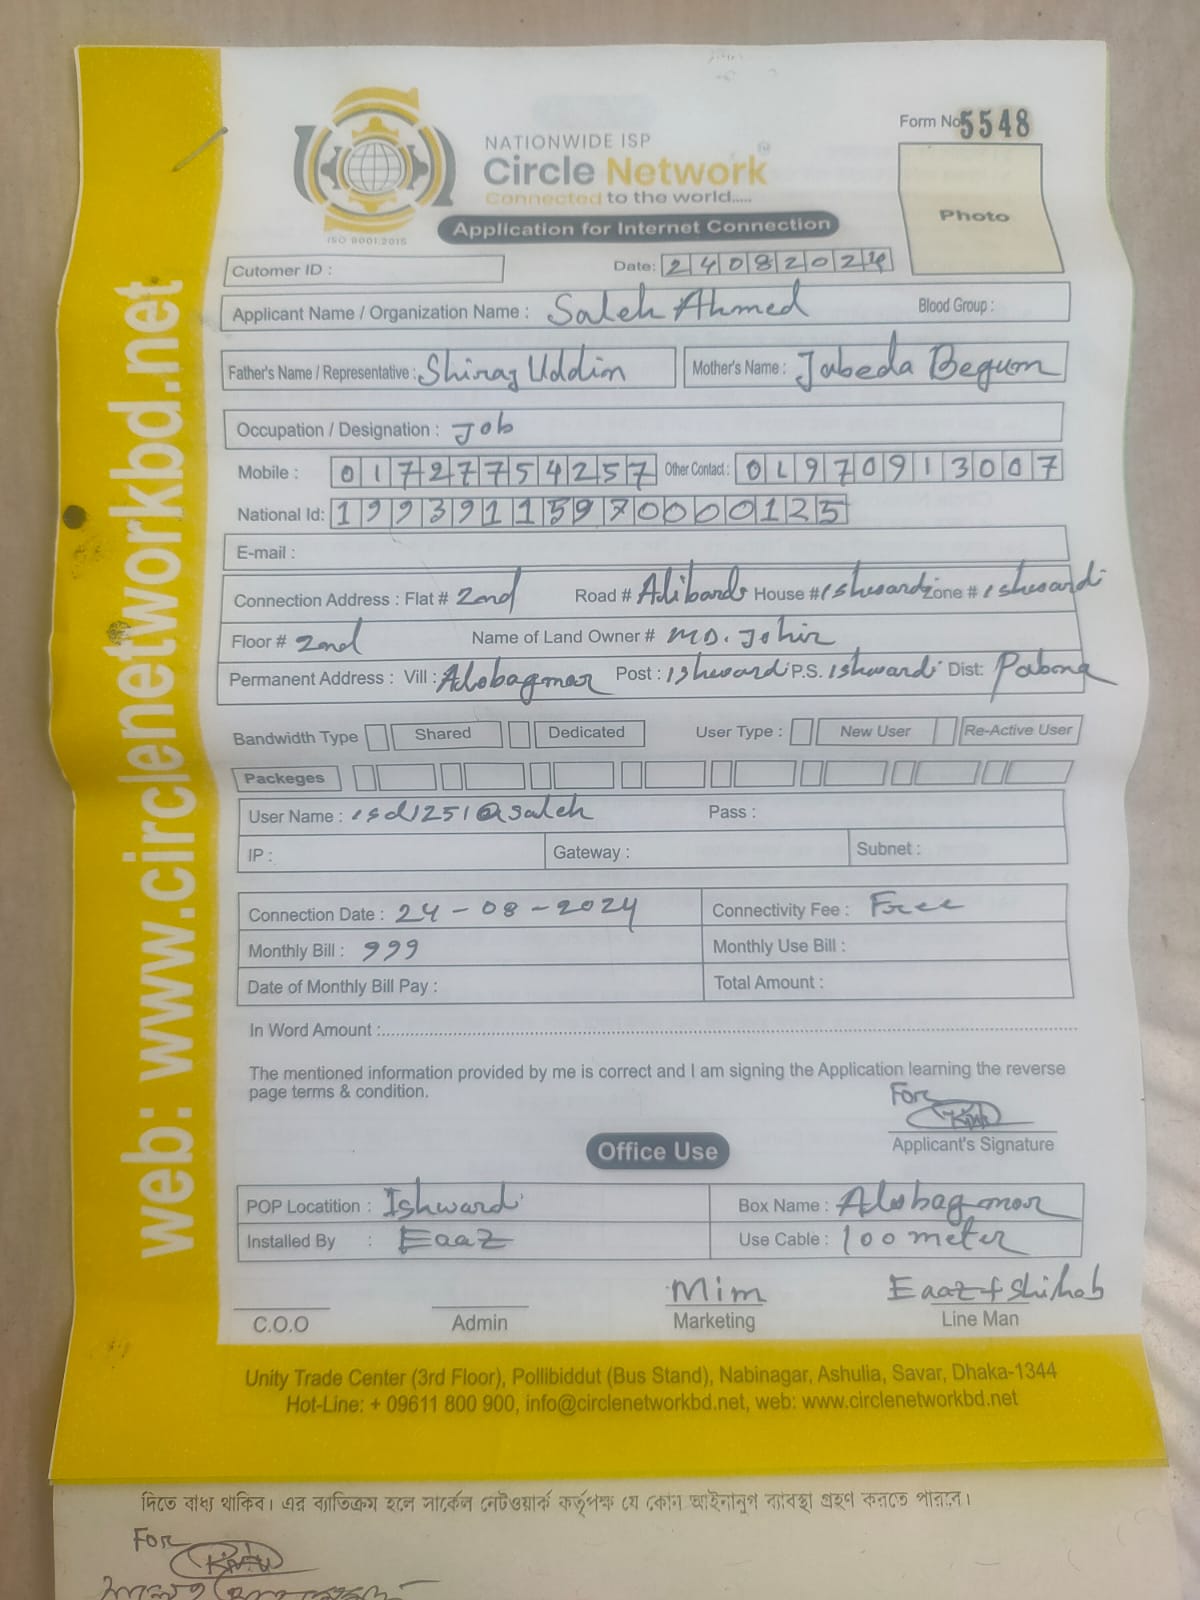 NATIONWIDE ISP
Circle Network
Connected to the world.....
ISO 9001:2015
Form No 5548
Photo
Application for Internet Connection
Cutomer ID :
Date: 24082024
Applicant Name / Organization Name : Saleh Ahmed Blood Group :
Father's Name / Representative : Shiraj Uddin Mother's Name : Jabeda Begum
Occupation / Designation : Job
Mobile : 01727754257 Other Contact : 01970913007
National Id: 19939115970000125
E-mail :
Connection Address : Flat # 2nd Road # House # ishwardi Zone # ishwardi
Floor # 2nd Name of Land Owner # MD. Johir
Permanent Address : Vill : Alobagmor Post : Ishwardi P.S. Ishwardi Dist: Pabna
Bandwidth Type Shared Dedicated User Type : New User Re-Active User
Packeges
User Name : isd1251@saleh Pass :
IP : Gateway : Subnet :
Connection Date : 24-08-2024 Connectivity Fee : Free
Monthly Bill : 999 Monthly Use Bill :
Date of Monthly Bill Pay : Total Amount :
In Word Amount :
The mentioned information provided by me is correct and I am signing the Application learning the reverse
page terms & condition.
For
Applicant's Signature
Office Use
POP Locatition : Ishwardi Box Name : Alobagmor
Installed By : Eaaz Use Cable : 100 meter
C.O.O Admin Mim Marketing Eaaz + Shihab Line Man
Unity Trade Center (3rd Floor), Pollibiddut (Bus Stand), Nabinagar, Ashulia, Savar, Dhaka-1344
Hot-Line: + 09611 800 900, info@circlenetworkbd.net, web: www.circlenetworkbd.net
web: www.circlenetworkbd.net
দিতে বাধ্য থাকিব। এর ব্যতিক্রম হলে সার্কেল নেটওয়ার্ক কর্তৃপক্ষ যে কোন আইনানুগ ব্যবস্থা গ্রহণ করতে পারবে।
For